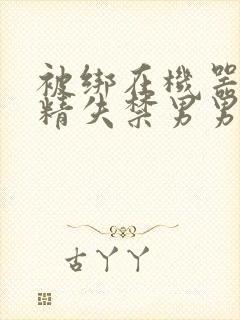 被绑在機器
精失禁男男
古丫丫